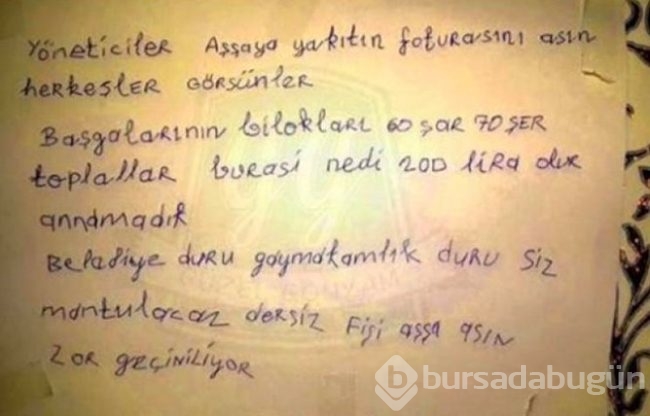 Yöneticiler Aşşaya yakıtın foturasını asın
herkeşler Görsünler
Başgalarının bilokları 60 şar 70 şer
toplallar burasi nedi 200 lira olur
annamadık
Beladiye duru gaymakamlık duru siz
mantulacaz dersiz Fişi aşşa asın
Zor geçiniliyor
b bursadabugün